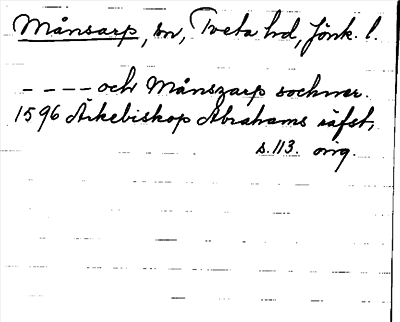 Månsarp, sn, Tveta hd, Jönk. l.
- - - - och Månszarp sochner.
1596 Ärkebiskop Abrahams räfst,
s. 113. orig.